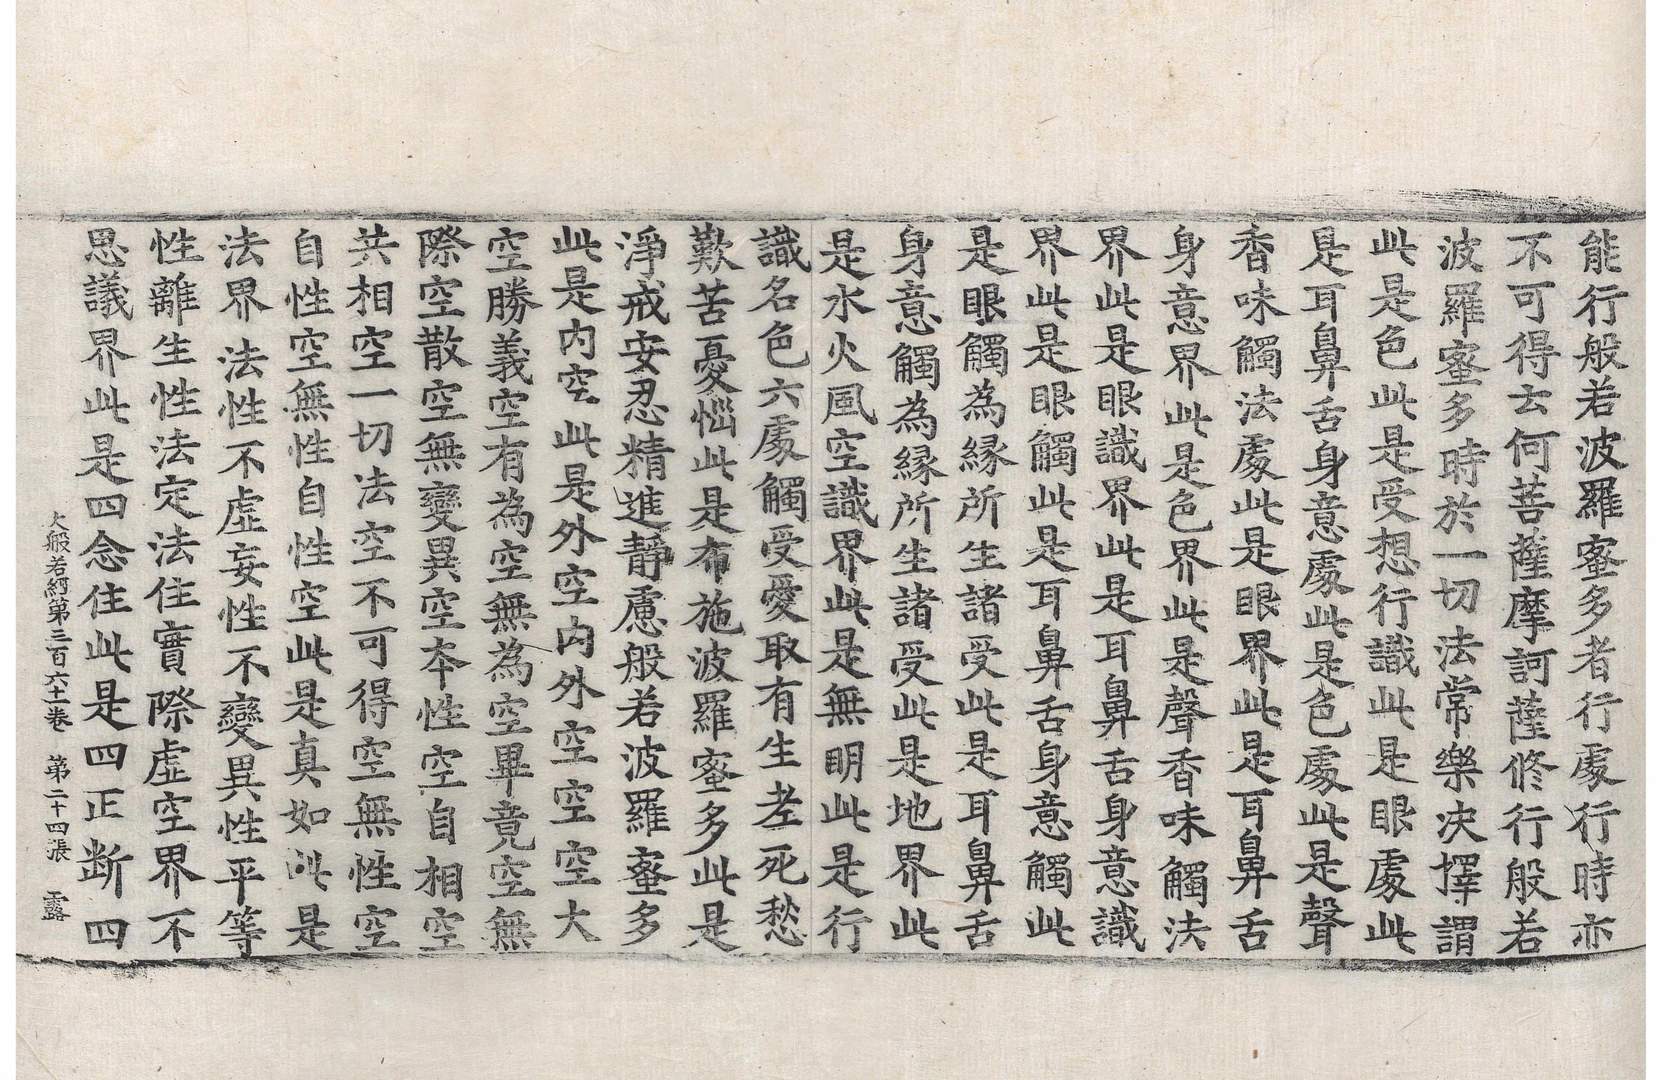 能行般若波羅蜜多者行處行時亦
不可得云何菩薩摩訶薩修行般若
波羅蜜多時於一切法常樂決擇謂
此是色此是受想行識此是眼處此
是耳鼻舌身意處此是色處此是聲
香味觸法處此是眼界此是耳鼻舌
身意界此是色界此是聲香味觸法
界此是眼識界此是耳鼻舌身意識
界此是眼觸此是耳鼻舌身意觸此
是眼觸為緣所生諸受此是耳鼻舌
身意觸為緣所生諸受此是地界此
是水火風空識界此是無明此是行
識名色六處觸受愛取有生老死愁
歎苦憂惱此是布施波羅蜜多此是
淨戒安忍精進靜慮般若波羅蜜多
此是內空此是外空內外空空空大
空勝義空有為空無為空畢竟空無
際空散空無變異空本性空自相空
共相空一切法空不可得空無性空
自性空無性自性空此是真如此是
法界法性不虛妄性不變異性平等
性離生性法定法住實際虛空界不
思議界此是四念住此是四正斷四
大般若經第三百六十一卷 第二十四張 露